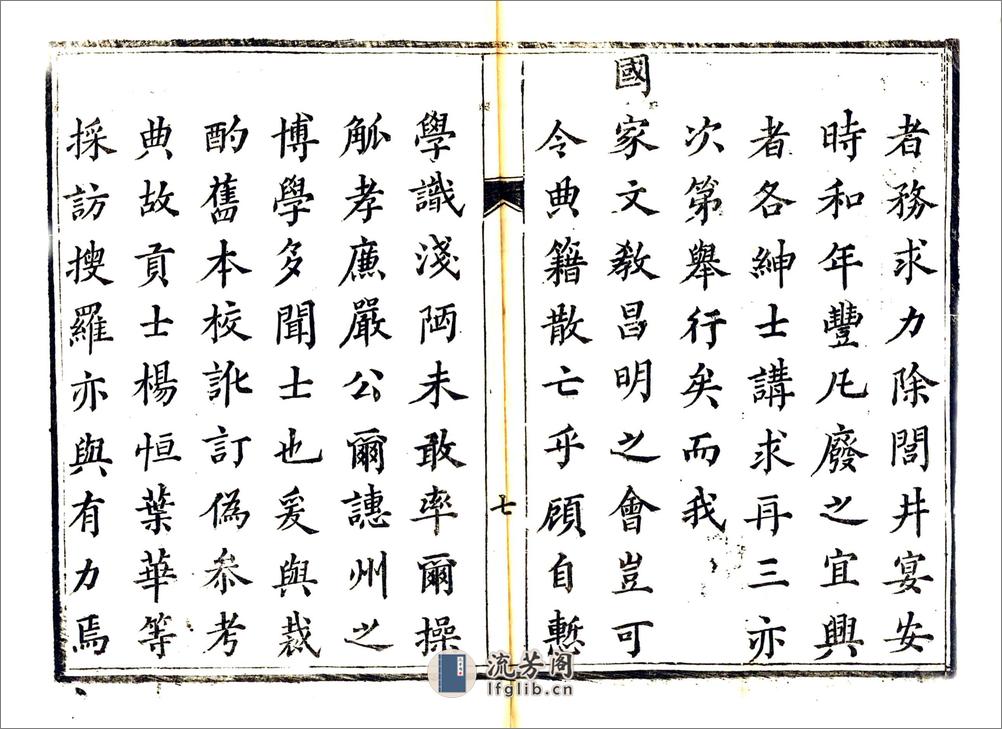 者務求力除閭井宴安
時和年豐凡廢之宜興
者各紳士講求再三亦
次第舉行矣而我
國家文教昌明之會豈可
令典籍散亡乎顧自慙
七
學識淺陋未敢率爾操
觚孝廉嚴公爾譓州之
博學多聞士也爰與裁
酌舊本校訛訂偽叅考
典故貢士楊恒葉華等
採訪搜羅亦與有力焉
流芳阁
lfglib.cn